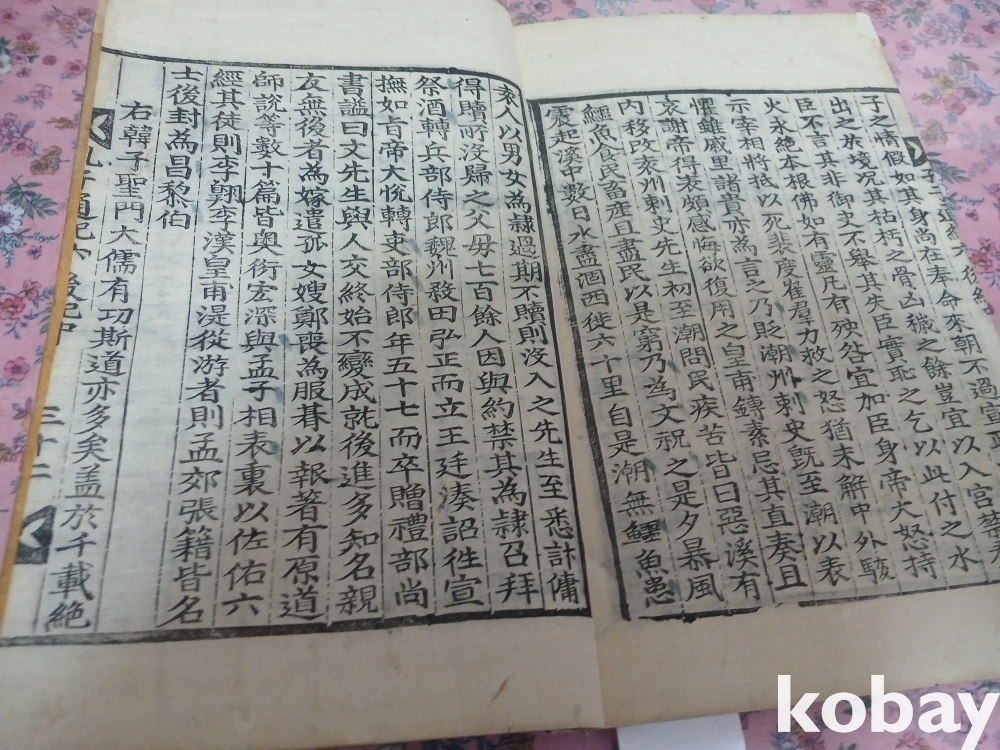 子之情假如其身尚在奉命來朝不過宣
出之於境況其枯朽之骨凶穢之餘豈宜以入宮禁
臣不言其非御史不舉其失臣實恥之乞以此付之水
火永絶本根佛如有靈凡有殃咎宜加臣身帝大怒持
示宰相將抵以死裴度崔羣力救之怒猶未解中外駭
懼雖戚里諸貴亦爲言之乃貶潮州刺史旣至潮以表
哀謝帝得表頗感悔欲復用之皇甫鏄素忌其直奏且
內移改袁州刺史先生初至潮問民疾苦皆曰惡溪有
鱷魚食民畜産且盡民以是窮乃爲文祝之是夕暴風
震起溪中數日水盡涸西徙六十里自是潮無鱷魚患
袁人以男女爲隷過期不贖則沒入之先生至悉計傭
得贖所沒歸之父母七百餘人因與約禁其爲隷召拜
祭酒轉兵部侍郎魏州殺田弘正而立王廷湊詔徃宣
撫如旨帝大悅轉吏部侍郎年五十七而卒贈禮部尚
書謚曰文先生與人交終始不變成就後進多知名親
友無後者爲嫁遣孤女嫂鄭喪爲服朞以報著有原道
師說等數十篇皆奥衍宏深與孟子相表裏以佐佑六
經其徒則李翱李漢皇甫湜從游者則孟郊張籍皆名
士後封爲昌黎伯
右韓子聖門大儒有功斯道亦多矣盖於千載絶
孔子通紀 後紀中 三十二
kobay